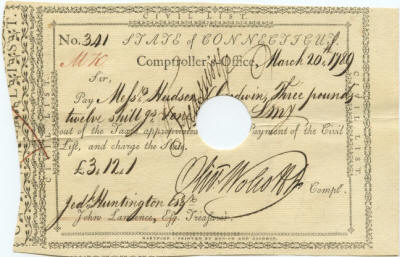 CIVIL LIST.
No. 341 STATE of CONNECTICUT.
M K Comptroller's-Office, March 20th 1789
Sir,
Pay Messrs. Hudson & Goodwin, Three pounds
twelve shillgs &
out of the Taxes appropriated Payment of the Civil
List, and charge the State.
£3,12,1
Olivr. Wolcott Jr. Compt.
Jedh. Huntington Esqr.
John Lawrence, Esq. Treasurer.
HARTFORD: PRINTED BY HUDSON AND GOODWIN.
CIVIL LIST.
CIVIL LIST.